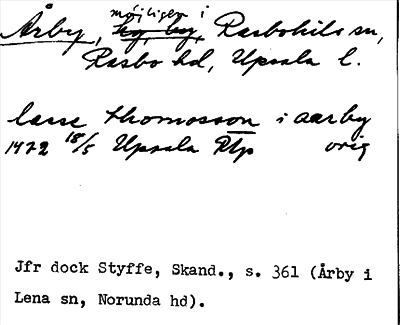 möjligen i
Årby, Rasbokils sn,
Rasbo hd, Upsala l.
lasse thomosson i aarby
1472 18/5 Upsala orig
Jfr dock Styffe, Skand., s. 361 (Årby i
Lena sn, Norunda hd).